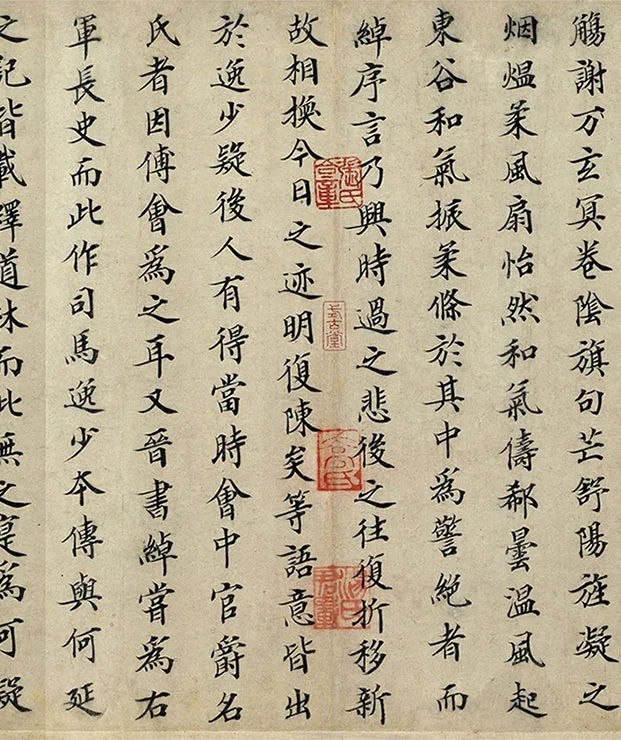 觴謝万玄冥卷陰旗句芒舒陽旌凝之
烟熅柔風扇怡然和氣儔郗曇温風起
東谷和氣振柔條於其中為警絶者而
綽序言乃興時過之悲後之往復折移新
故相換今日之迹明復陳矣等語意皆出
於逸少疑後人有得當時會中官爵名
氏者因傅會爲之耳又晉書綽嘗為右
軍長史而此作司馬逸少夲傳與何延
之記皆載釋道林而此無之寔為可疑